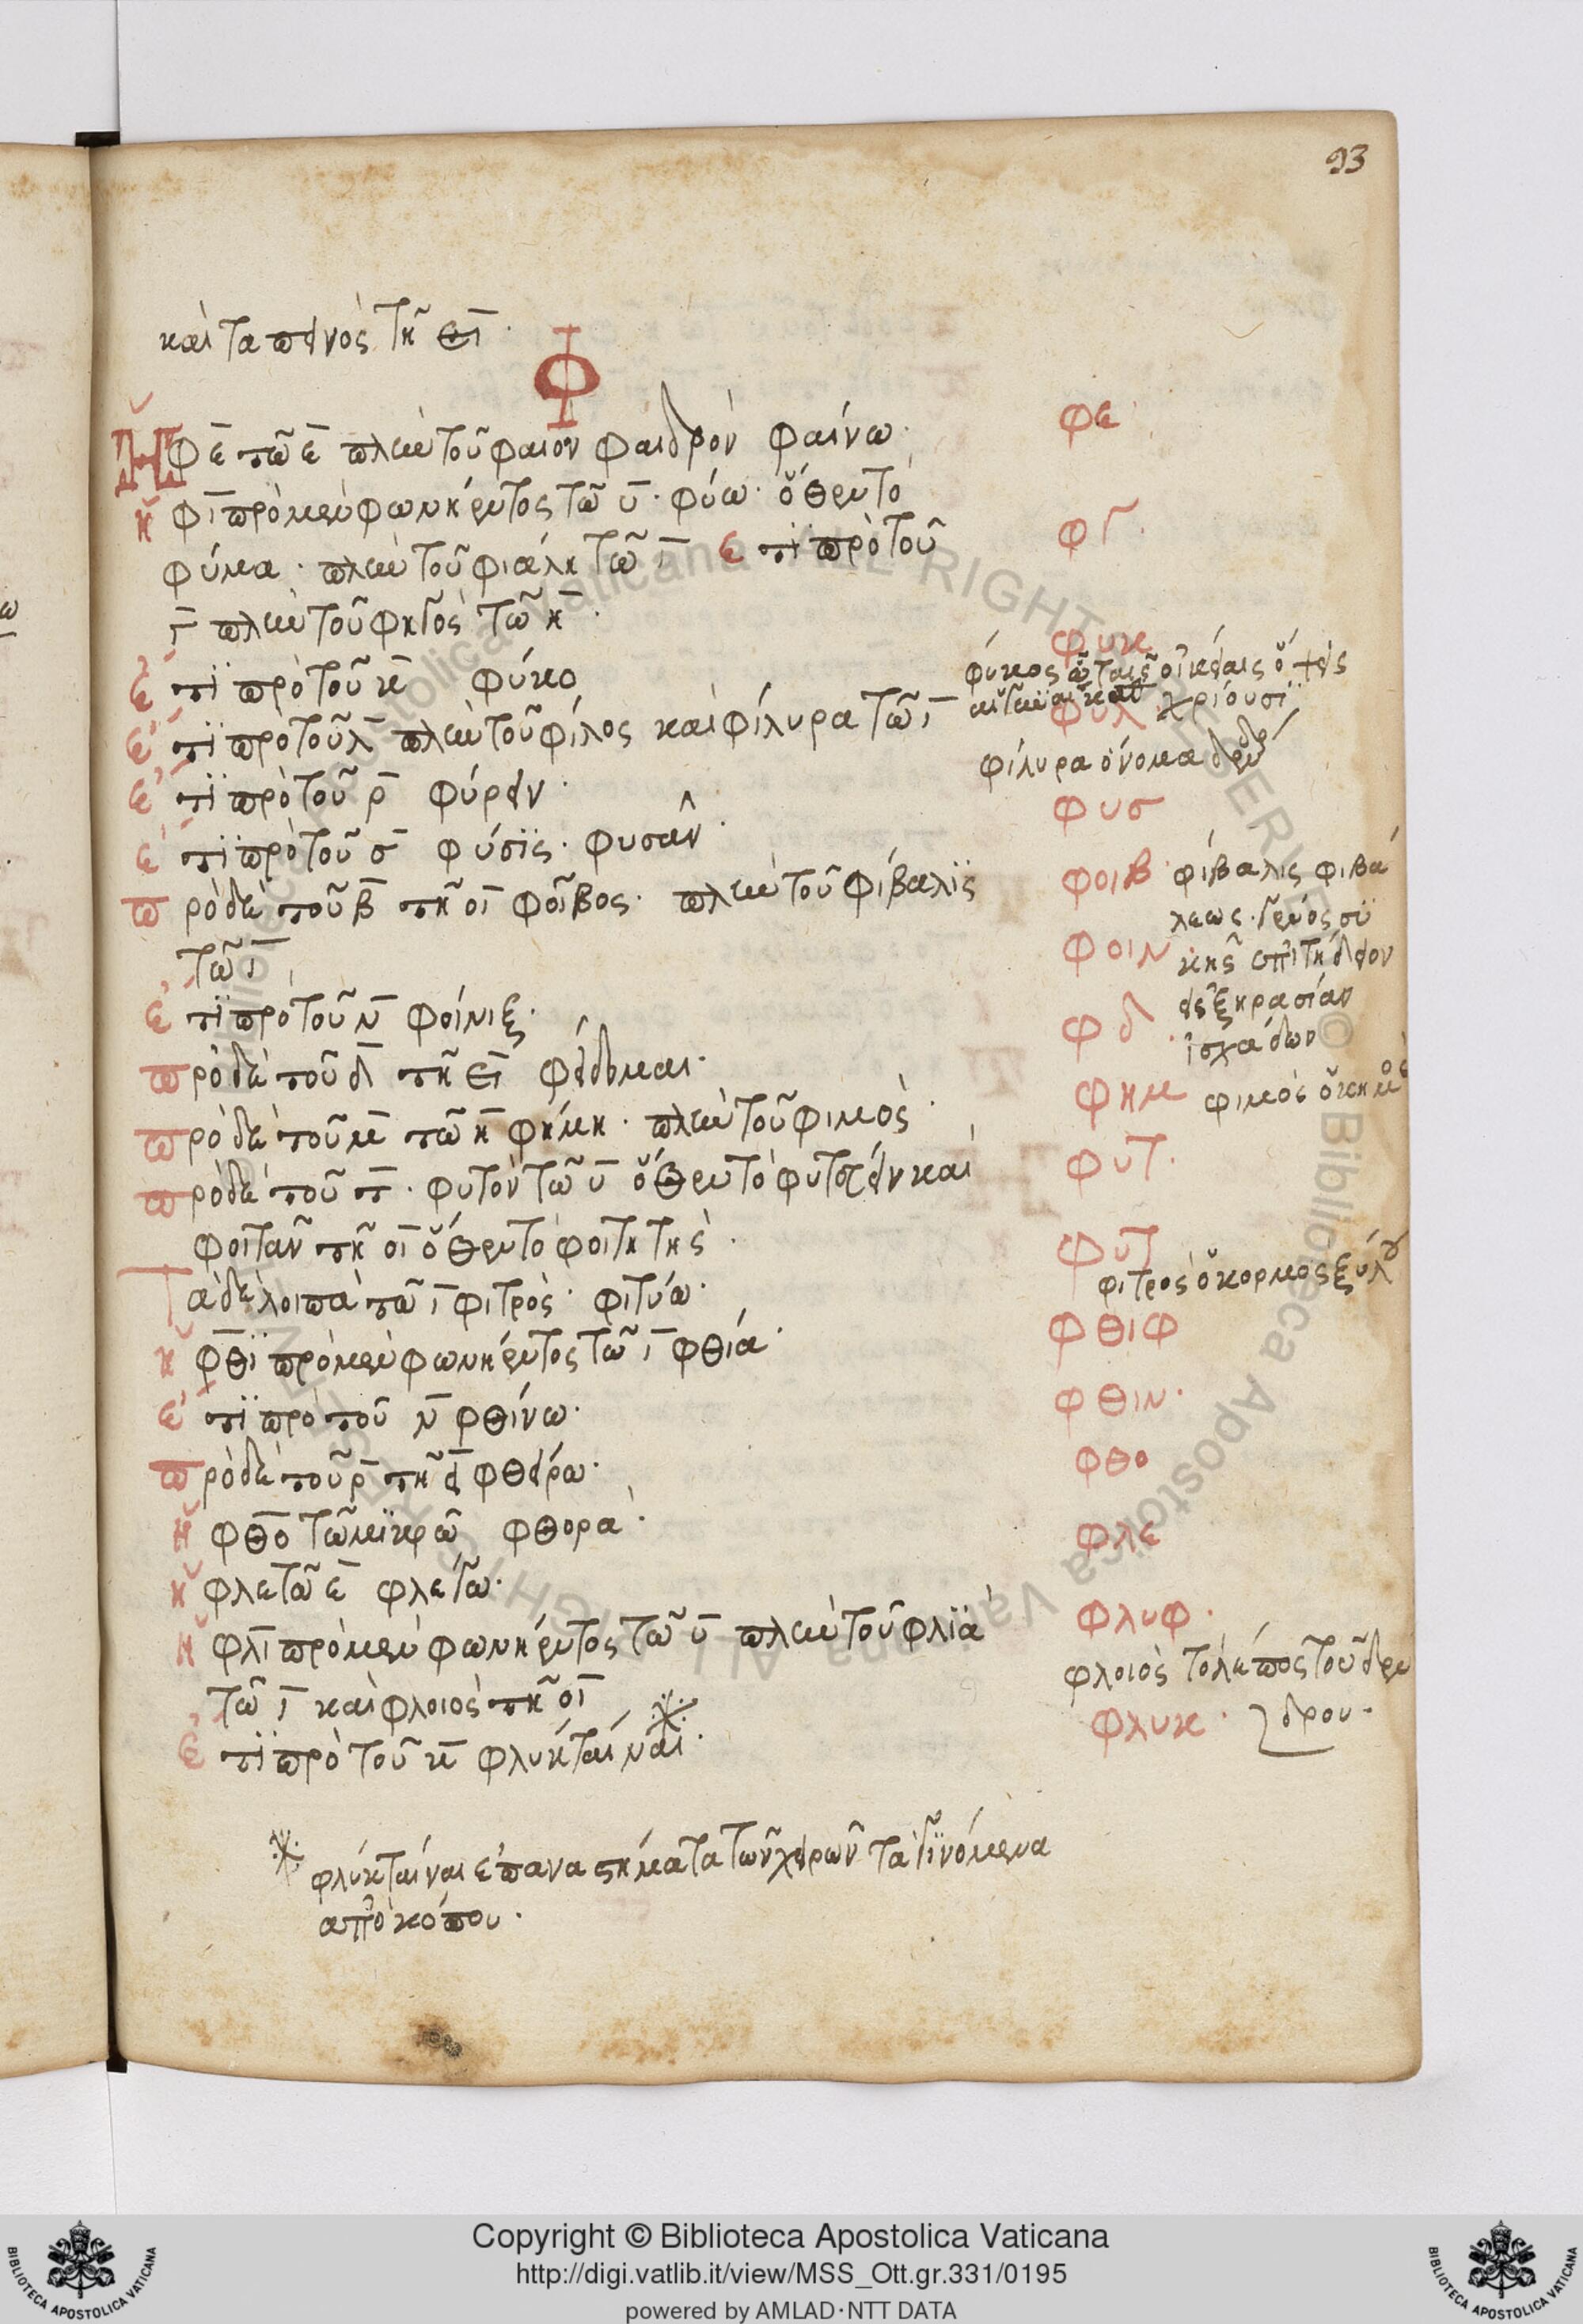 93
καὶ ταπεινὸς τῆ ει·
Φ
Ἡ φε τῶ ε πλὴν τοῦ φαιὸν φαιδρὸν φαίνω·
φε
ἡ φι πρὸ μὲν φωνήεντος τῶ υ· φύω· ὅθεν τὸ
φύμα· πλὴν τοῦ φιάλη τῶ ι ἐπὶ πρὸ τοῦ
φγ·
γ πλὴν τοῦ φηγὸς τῶ η·
ἐπὶ πρὸ τοῦ κ φύκο
φυκ
ἐπὶ πρὸ τοῦ λ πλὴν τοῦ φίλος καὶ φίλυρα τῶ ι
φυλ·
χρίουσι
φίλυρα ὄνομα
ἐπὶ πρὸ τοῦ ρ φύρειν·
ἐπὶ πρὸ τοῦ σ φύσις· φυσᾶν·
φυσ
πρὸ δὲ τοῦ β τῆ οι φοῖβος· πλὴν τοῦ φίβαλις
τῶ ι
φοιβ· φίβαλις φιβά
λεως·
ἐπιτήδειον
ἰσχάδων
ἐπὶ πρὸ τοῦ ν φοίνιξ·
φοιν·
πρὸ δὲ τοῦ δ τῆ ει φείδομαι·
φδ·
πρὸ δὲ τοῦ μ τῶ η φήμη· πλὴν τοῦ φιμὸς·
φημ φιμὸς ὁ κημὸς
πρὸ δὲ τοῦ τ· φυτὸν τῶ υ ὅθεν τὸ φυτεύειν καὶ
φοιτᾶν τῆ οι ὅθεν τὸ φοιτητὴς·
φυτ·
Τὰ δὲ λοιπὰ τῶ ι φιτρὸς· φιτύω·
φυτ
φιτρος ὁ κορμος ξύλου
ἡ φθι πρὸ μὲν φωνήεντος τῶ ι φθία·
φθιφ
ἐπὶ πρὸ τοῦ ν φθίνω·
φθιν·
πρὸ δὲ τοῦ ρ τῆ ει φθείρω·
ἡ φθο τῶ μικρῶ φθορὰ·
φθο
ἡ φλε τῶ ε φλέγω·
φλε
ἡ φλι πρὸ μὲν φωνήεντος τῶ υ πλὴν τοῦ φλιὰ
τῶ ι καὶ φλοιὸς τῆ οι
φλυφ·
φλοιὸς τὸ λέπος τοῦ δέν
δρου·
ἐπὶ πρὸ τοῦ κ φλύκταιναι·
φλυκ·
φλύκταιναι ἐπαναστήματα τῶν χειρῶν τὰ γινόμενα
ἀπὸ κόπου·
Copyright © Biblioteca Apostolica Vaticana
http://digi.vatlib.it/view/MSS_Ott.gr.331/0195
powered by AMLAD·NTT DATA
BIBLIOTECA APOSTOLICA VATICANA
BIBLIOTECA APOSTOLICA VATICANA